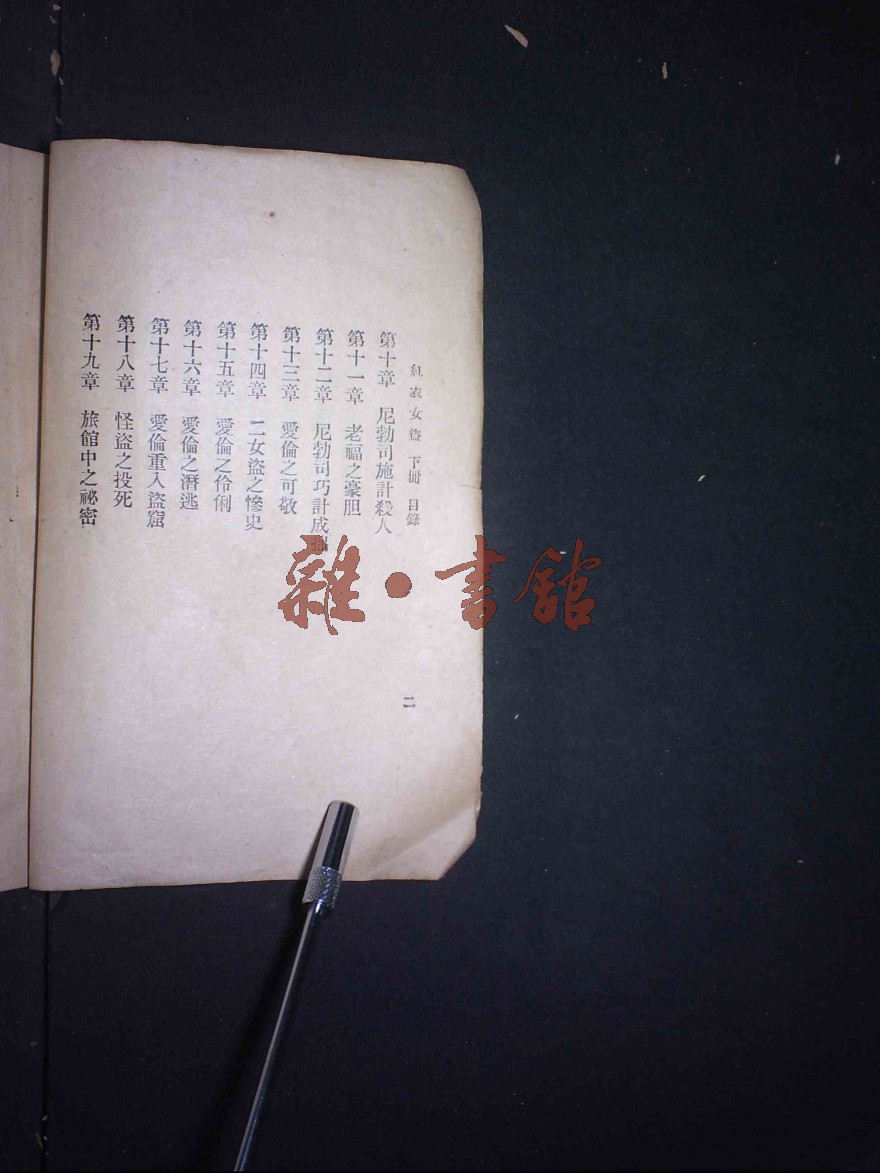 紅衣女盜 下册 目錄
二
第十章 尼勃司施計殺人
第十一章 老福之豪胆
第十二章 尼勃司巧計成
第十三章 愛倫之可敬
第十四章 二女盜之慘史
第十五章 愛倫之伶俐
第十六章 愛倫之潛逃
第十七章 愛倫重入盜窟
第十八章 怪盜之投死
第十九章 旅館中之祕密
雜·書館